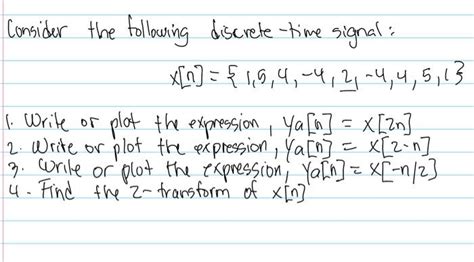 Consider the following discrete-time signal:
x[n] = {1,5,4,-4,2,-4,4,5,1}
1. Write or plot the expression, ya[n] = x[2n]
2. Write or plot the expression, ya[n] = x[2-n]
3. Write or plot the expression, ya[n] = x[-n/2]
4. Find the z-transform of x[n]